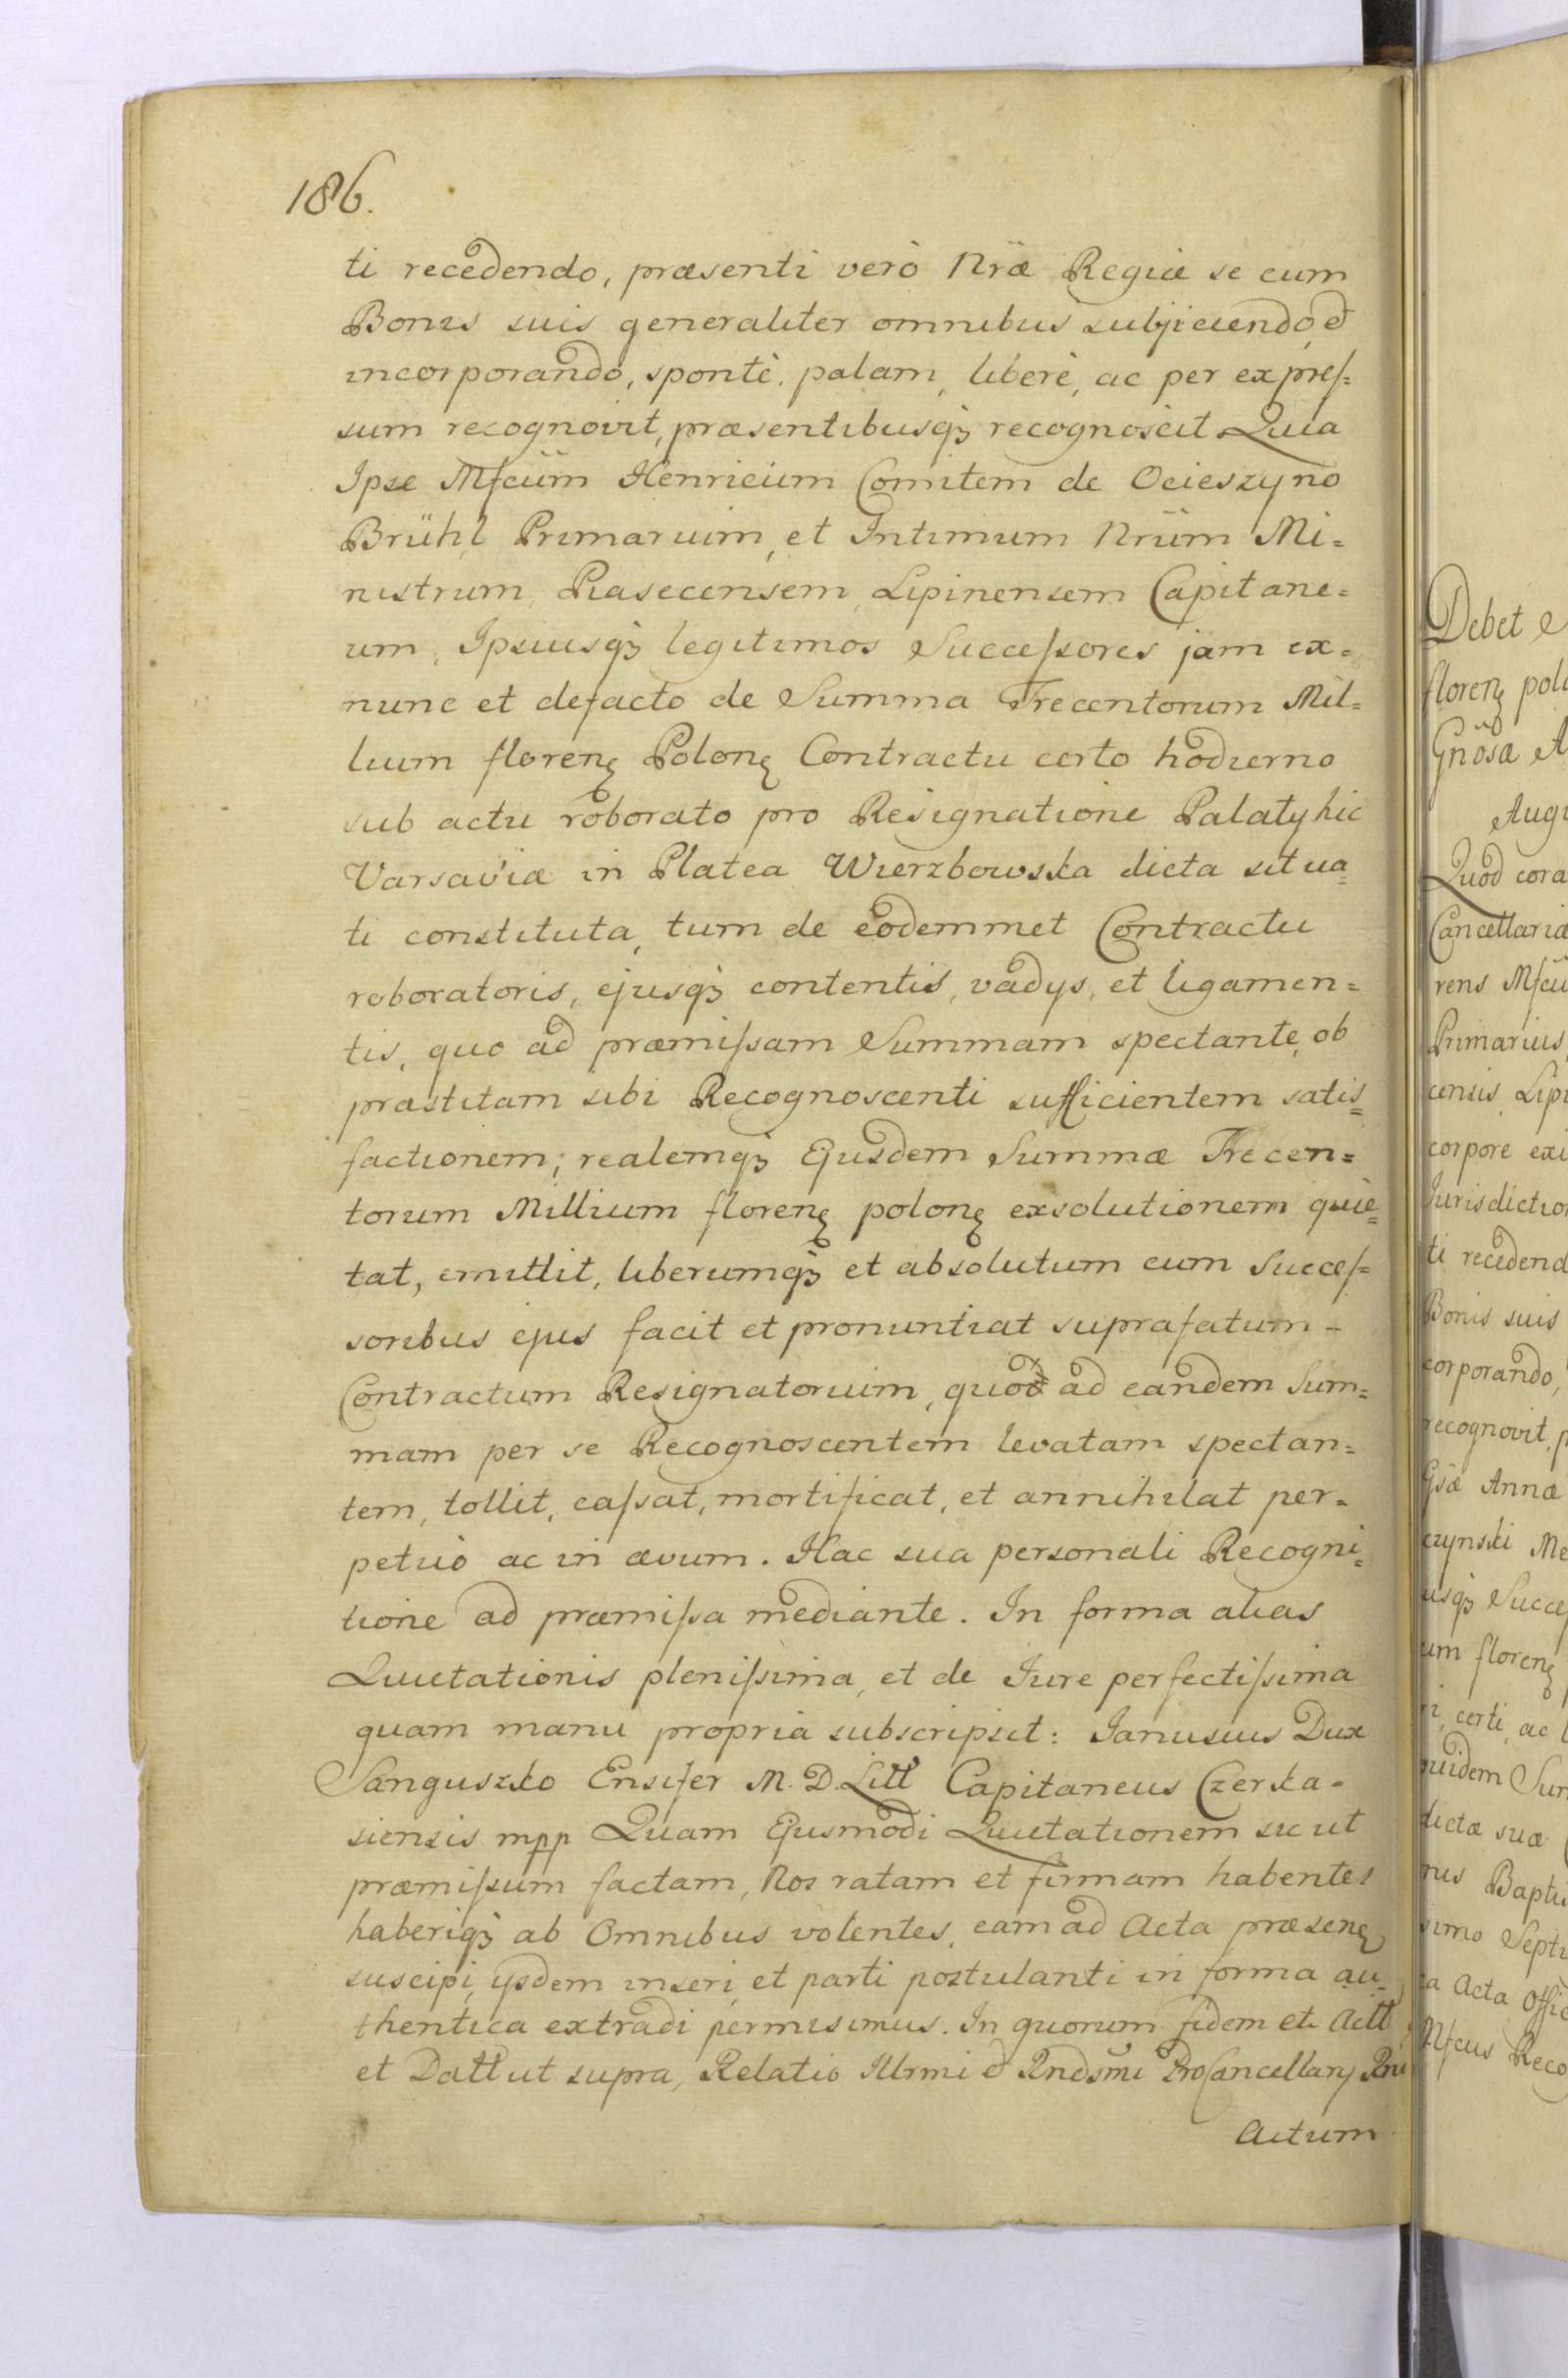 186.
ti recedendo, præsenti verò Nræ Regiæ se cum
Bonis suis generaliter omnibus subjiciendo, et
incorporando, spontè, palam, liberè, ac per expres=
sum recognovit, præsentibusq3 recognoscit Quia
Ipse Mfcum Henricum Comitem de Ocieszyno
Brühl Primarium, et Intimum Nrum Mi=
nistrum, Piasecensem, Lipinensem Capitane=
um, Ipsiusq3 legitimos Successores jam ex=
nunc et defacto de Summa Trecentorum Mil=
lium floren Polon Contractu certo hodierno
sub actu roborato pro Resignatione Palaty hic
Varsaviæ in Platea Wierzbowska dicta situa=
ti constituta, tum de eodemmet Contractu
roboratoris, ejusq3 contentis, vadys, et ligamen=
tis, quo ad præmissam Summam spectante, ob
præstitam sibi Recognoscenti sufficientem satis=
factionem; realemq3 Ejusdem Summæ Trecen=
torum Millium floren polon exsolutionem quie=
tat, emittit, liberumq3 et absolutum cum Succes=
soribus ejus facit et pronuntiat suprafatum =
Contractum Resignatorium, quod ad eandem Sum=
mam per se Recognoscentem levatam spectan=
tem, tollit, cassat, mortificat, et annihilat per=
petuò ac in ævum. Hac sua personali Recogni=
tione ad præmissa mediante. In forma alias
Quietationis plenissima, et de Iure perfectissima
quam manu propria subscripsit: Ianusius Dux
Sanguszko Ensifer M. D. Litt Capitaneus Czerka=
siensis mpp Quam Ejusmodi Quietationem sic ut
præmissum factam, Nos ratam et firmam habentes
haberiq3 ab Omnibus volentes, eam ad Acta præsen
suscipi, ysdem inseri, et parti postulanti in forma au=
thentica extradi permisimus. In quorum fidem etc Actt
et Datt ut supra, Relatio Illrmi et Rndsmi ProCancellary Rni
Actum
Debet e
floren polo
Gnosæ A
Augu
Quod cora
Cancellariæ
rens Mfcu
Primarius,
censis Lipi
corpore exi
Jurisdictio
ti recedend
Bonis suis
corporando,
recognovit, p
Gsæ Annæ
czynski Me
usq3 Succes
um floren
certi, ac l
quidem Sum
dictæ suæ
nis Baptis
simo Septi
ta Acta Offic
Mfcus Reco